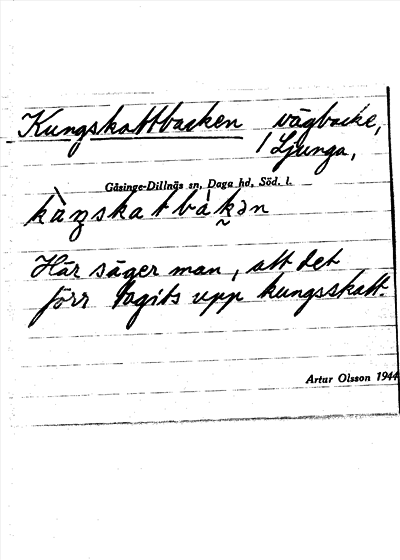 Kungskattbacken vägbacke,
/ Ljunga,
Gåsinge-Dillnäs sn, Daga hd, Söd. l.
kàŋskatbàk̰ən
Här säger man, att det
förr tagits upp kungsskatt.
Artur Olsson 1944